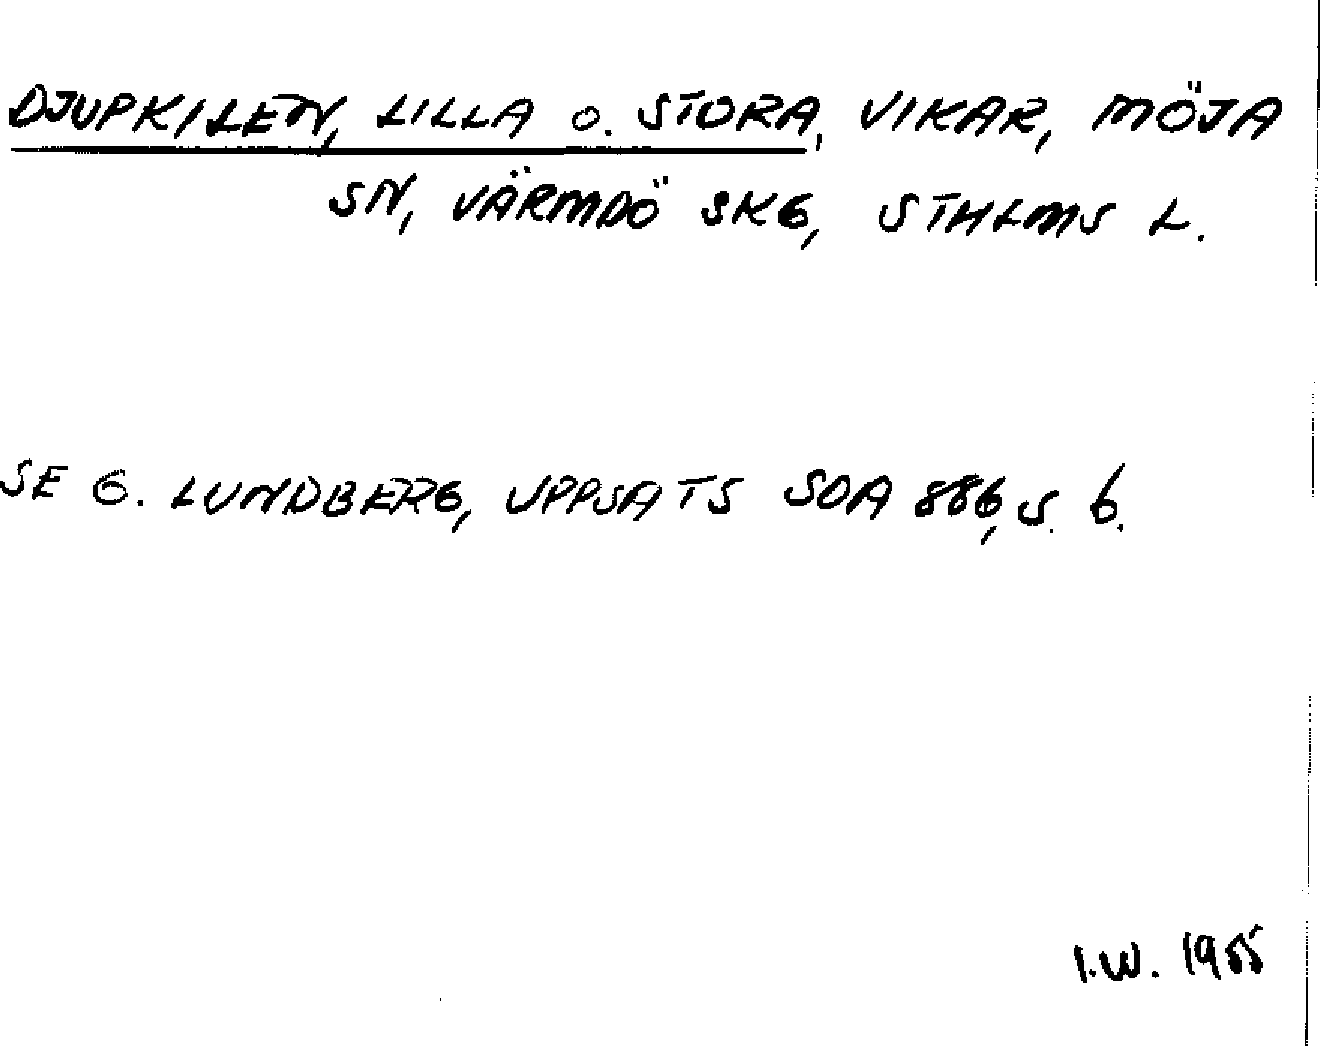 DJUPKILEN, LILLA o. STORA, VIKAR, MÖJA
SN, VÄRMDÖ SKG, STHLMS L.
SE G. LUNDBERG, UPPSATS SOA 886, S. 6.
I.W. 1955